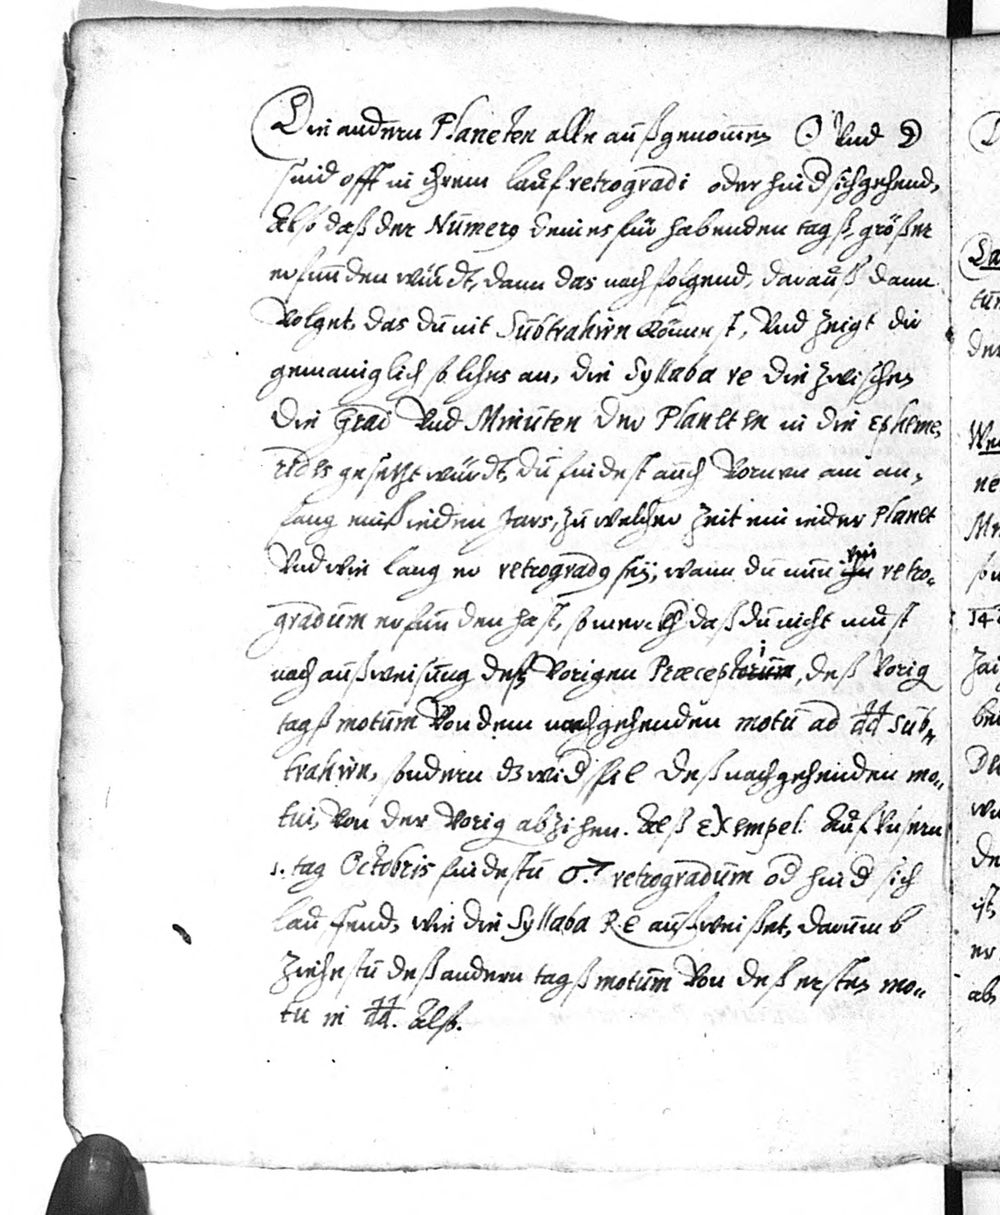 Die andern Planeten alle außgenomen ☉ Vnd ☽
sind offt in ihrem lauf retrogradi oder hindsichgehend,
Alß daß der Numerꝰ deines für habenden tagß, größer
erfunden würdt, dann das nachfolgend, darauß dann
Volget, das du nit Subtrahirn könnest, Vnd zeigt dir
gemaniglich solches an, die Syllaba re die zwischen
die Grad Vnd Minuten der Planeten in die Epheme,
rides gesetzt würdt, du findest auch Vornen am an,
fang eines ieden Jars, zu welcher Zeit ein ieder Planet
Vnd wie lang er retrogradꝰ sey, wann du nun ein retro„
gradum erfunden hast, so merckh daß du nicht must
nach außweisung deß Vorigen Præcepti, deß Vorig
tagß motum Von dem nachgehenden motu ad dd sub„
trahirn, sondern dz widspil deß nachgehenden mo„
tui, Von der Vorig abzihen. Alß Exempel. Auf Vnsern
1. tag Octobris findestu ♂ retrogradum od hind sich
lauffend, wie die Syllaba R.e außweißet, darumb
ziehestu deß andern tagß motum Von deß ersten mo„
tu in dd. Alß.
Da
tu
der
ne
14
Zai
bei
De
wi
de
ist,
er
ab